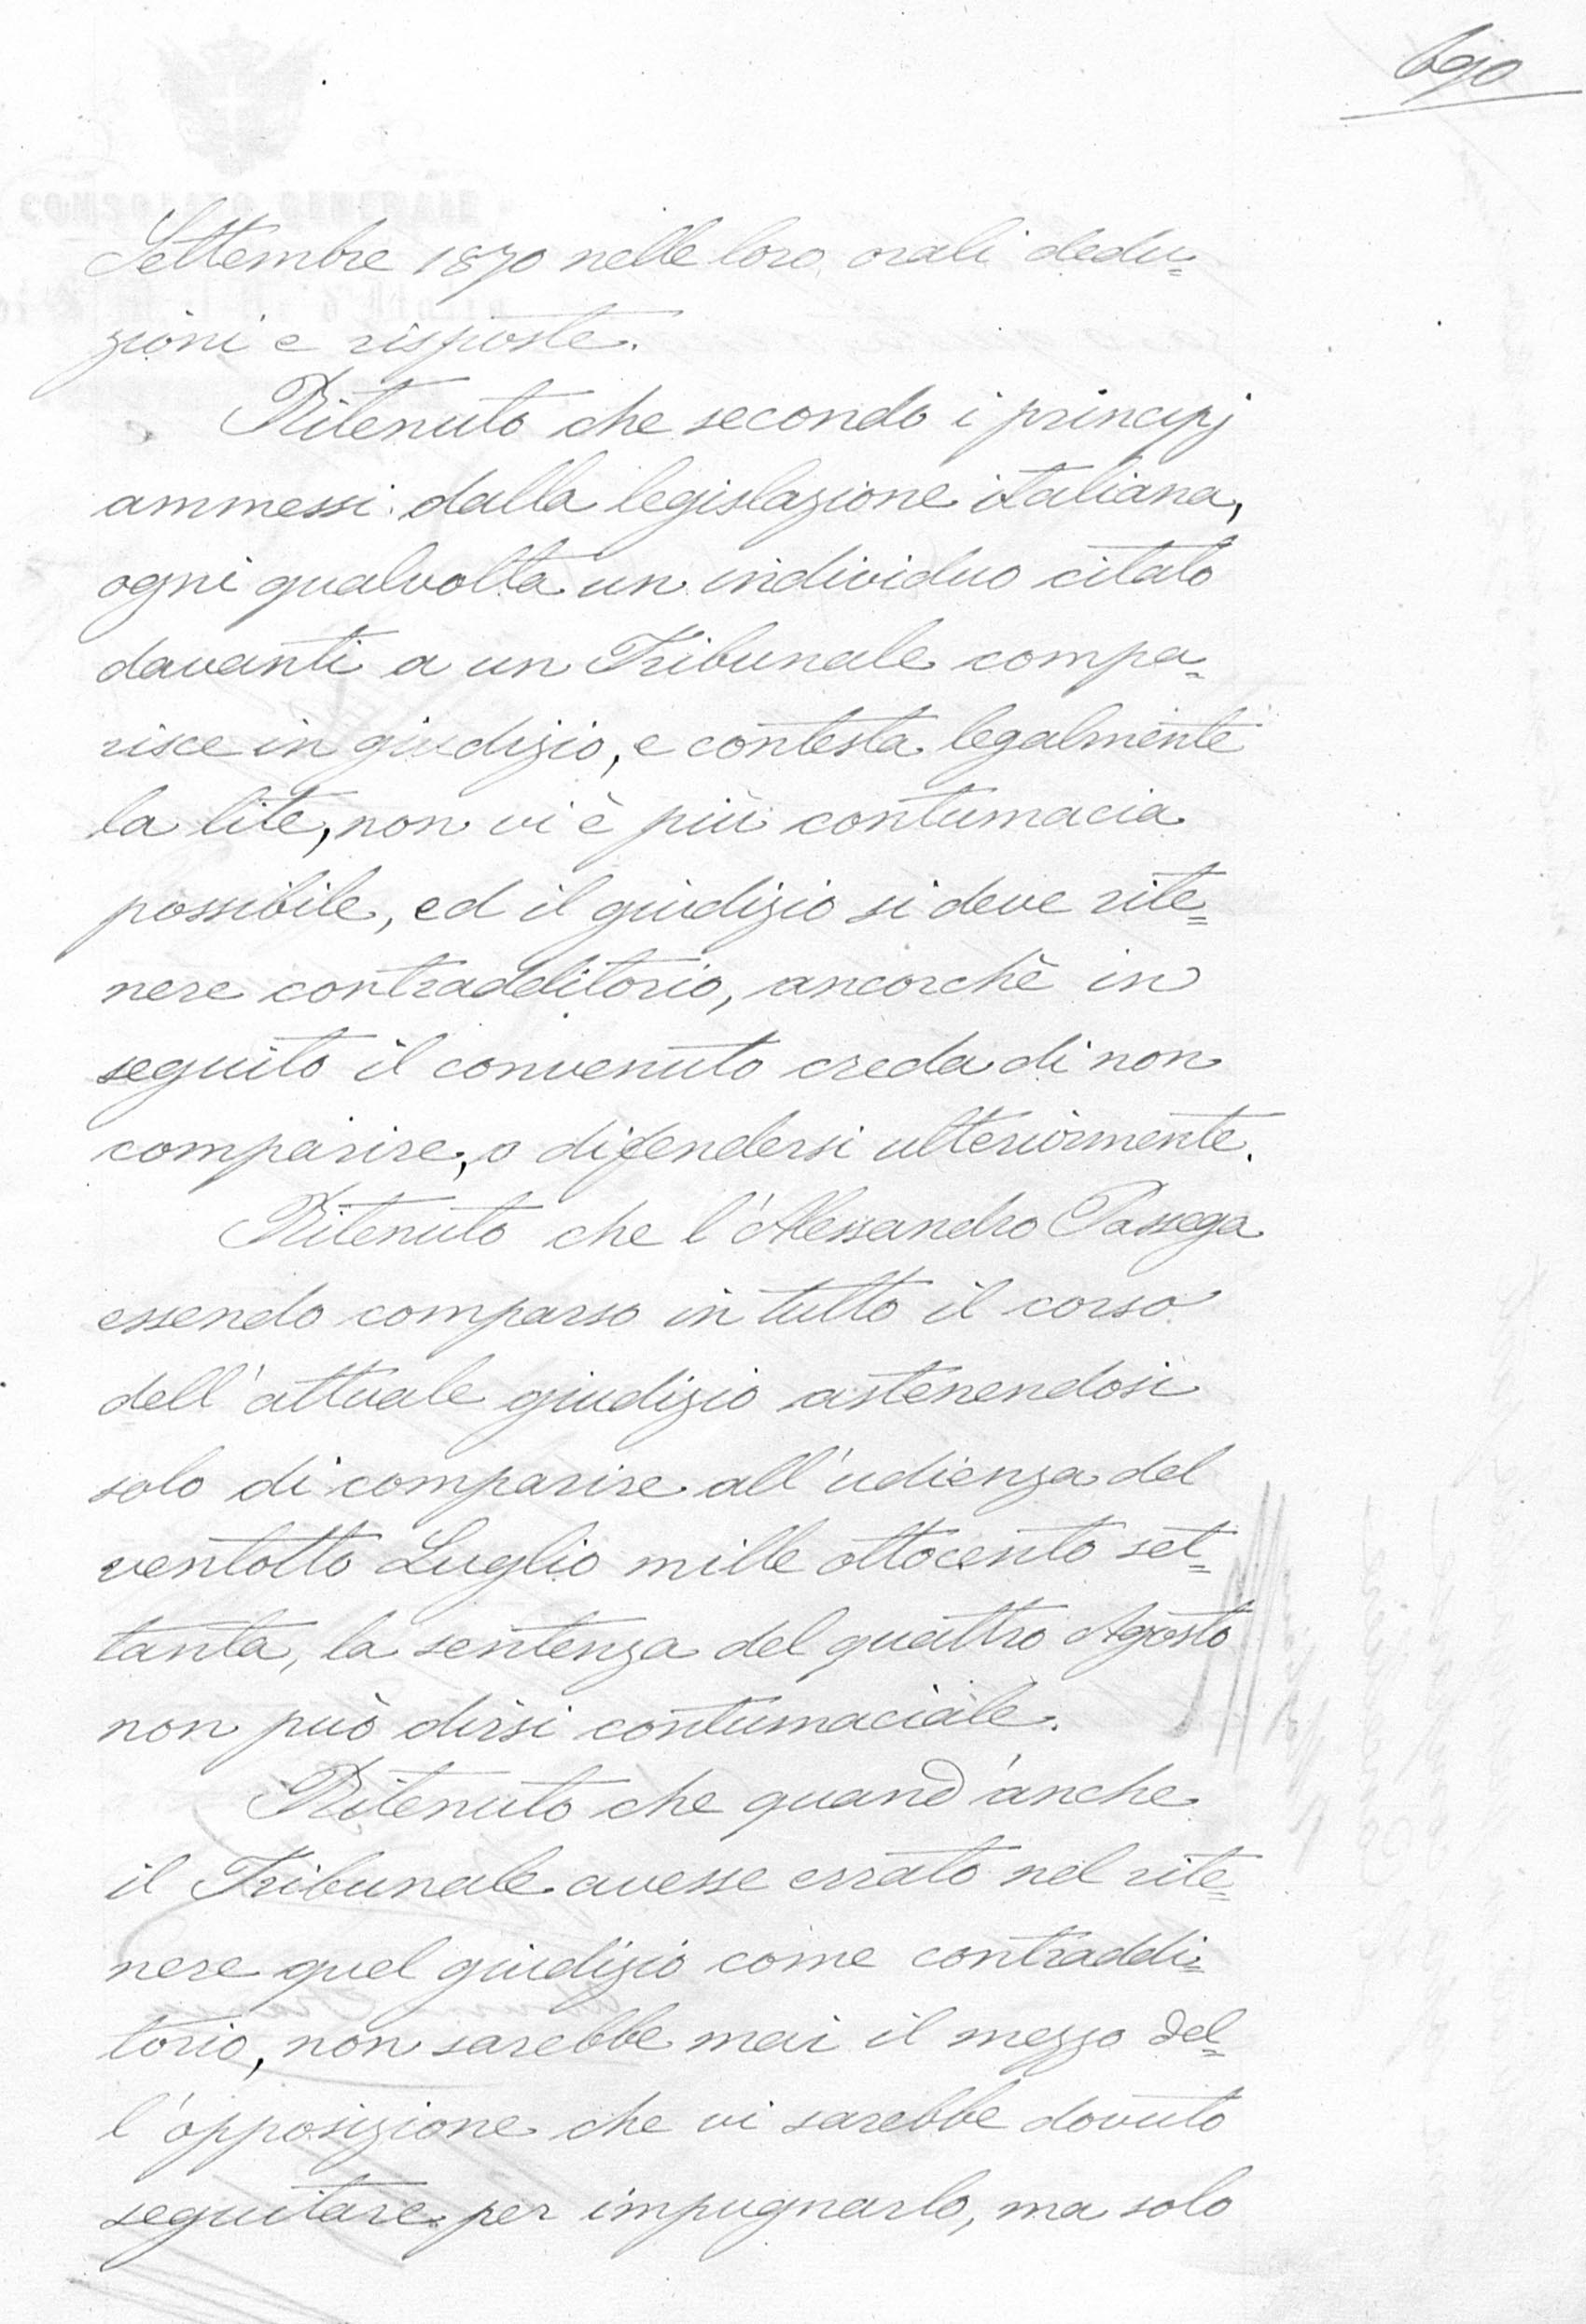 690
CONSOLATO GENERALE
Settembre 1870 nelle loro orali dedu=
zioni e risposte.
Ritenuto che secondo i principj
ammessi dalla legislazione italiana,
ogni qualvolta un individuo citato
davanti a un Tribunale compa=
risce in giudizio, e contesta legalmente
la lite, non vi è più contumacia
possibile, ed il giudizio si deve rite=
nere contradditorio, ancorchè in
seguito il convenuto creda di non
comparire, o difendersi ulteriormente.
Ritenuto che l'Alessandro Passega
essendo comparso in tutto il corso
dell'attuale giudizio astenendosi
solo di comparire all'udienza del
ventotto Luglio mille ottocento set=
tanta, la sentenza del quattro Agosto
non può dirsi contumaciale.
Ritenuto che quand'anche
il Tribunale avesse errato nel rite=
nere quel giudizio come contraddi=
torio, non sarebbe mai il mezzo del=
l'opposizione che vi sarebbe dovuto
seguitare per impugnarlo, ma solo